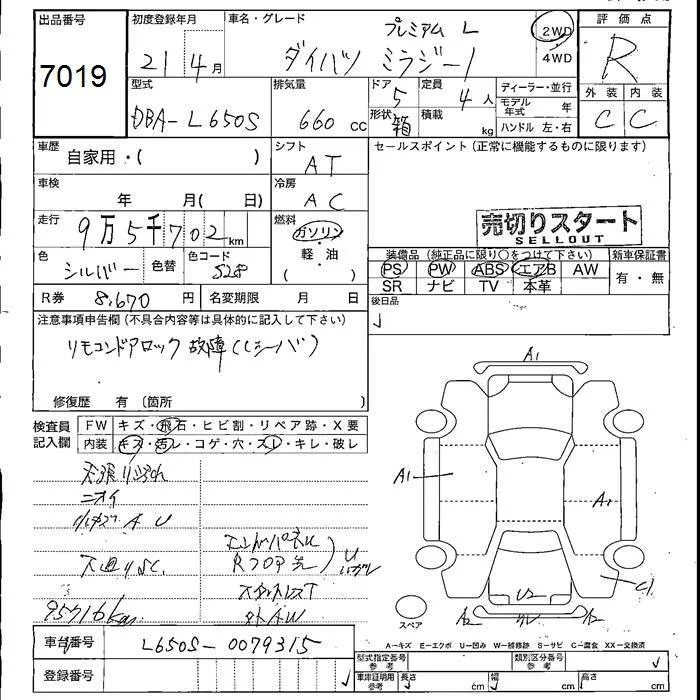 出品番号
7019
初度登録年月
21 4月
車名・グレード
プレミアム L
ダイハツ ミラジーノ
2WD
4WD
評価点
R
外装 内装
C C
型式
DBA-L650S
排気量
660 cc
ドア
5
形状
箱
定員
4人
積載
kg
ディーラー・並行
モデル年式 年
ハンドル 左・右
車歴
自家用・( )
シフト
AT
車検
年 月( 日)
冷房
AC
走行
9万5千702km
燃料
ガソリン
・
軽・油
( )
色
シルバー
色替
色コード
S28
R券 8,670円
名変期限 月 日
セールスポイント(正常に機能するものに限ります)
売切りスタート
SELLOUT
装備品(純正品に限り○をつけて下さい)
PS PW ABS エアB AW
SR ナビ TV 本革
新車保証書
有・無
後日品
注意事項申告欄(不具合内容等は具体的に記入して下さい)
リモコンドアロック故障(レシーバ)
修復歴 有(箇所
検査員記入欄
FW キズ・飛石・ヒビ割・リペア跡・X要
内装 キズ・汚レ・コゲ・穴・スレ・キレ・破レ
ニオイ
A U
エンドパネル
Rフロア先
U
スタットレスT
社外AW
95716km
A1
A1
A2
U2
A2
A2
C1
スペア
A-キズ E-エクボ U-凹み W-補修跡 S-サビ C-腐食 XX-交換済
車台番号
L650S-0079315
登録番号
型式指定番号
参考
類別区分番号
参考
車庫証明用
参考
長さ cm
幅 cm
高さ cm